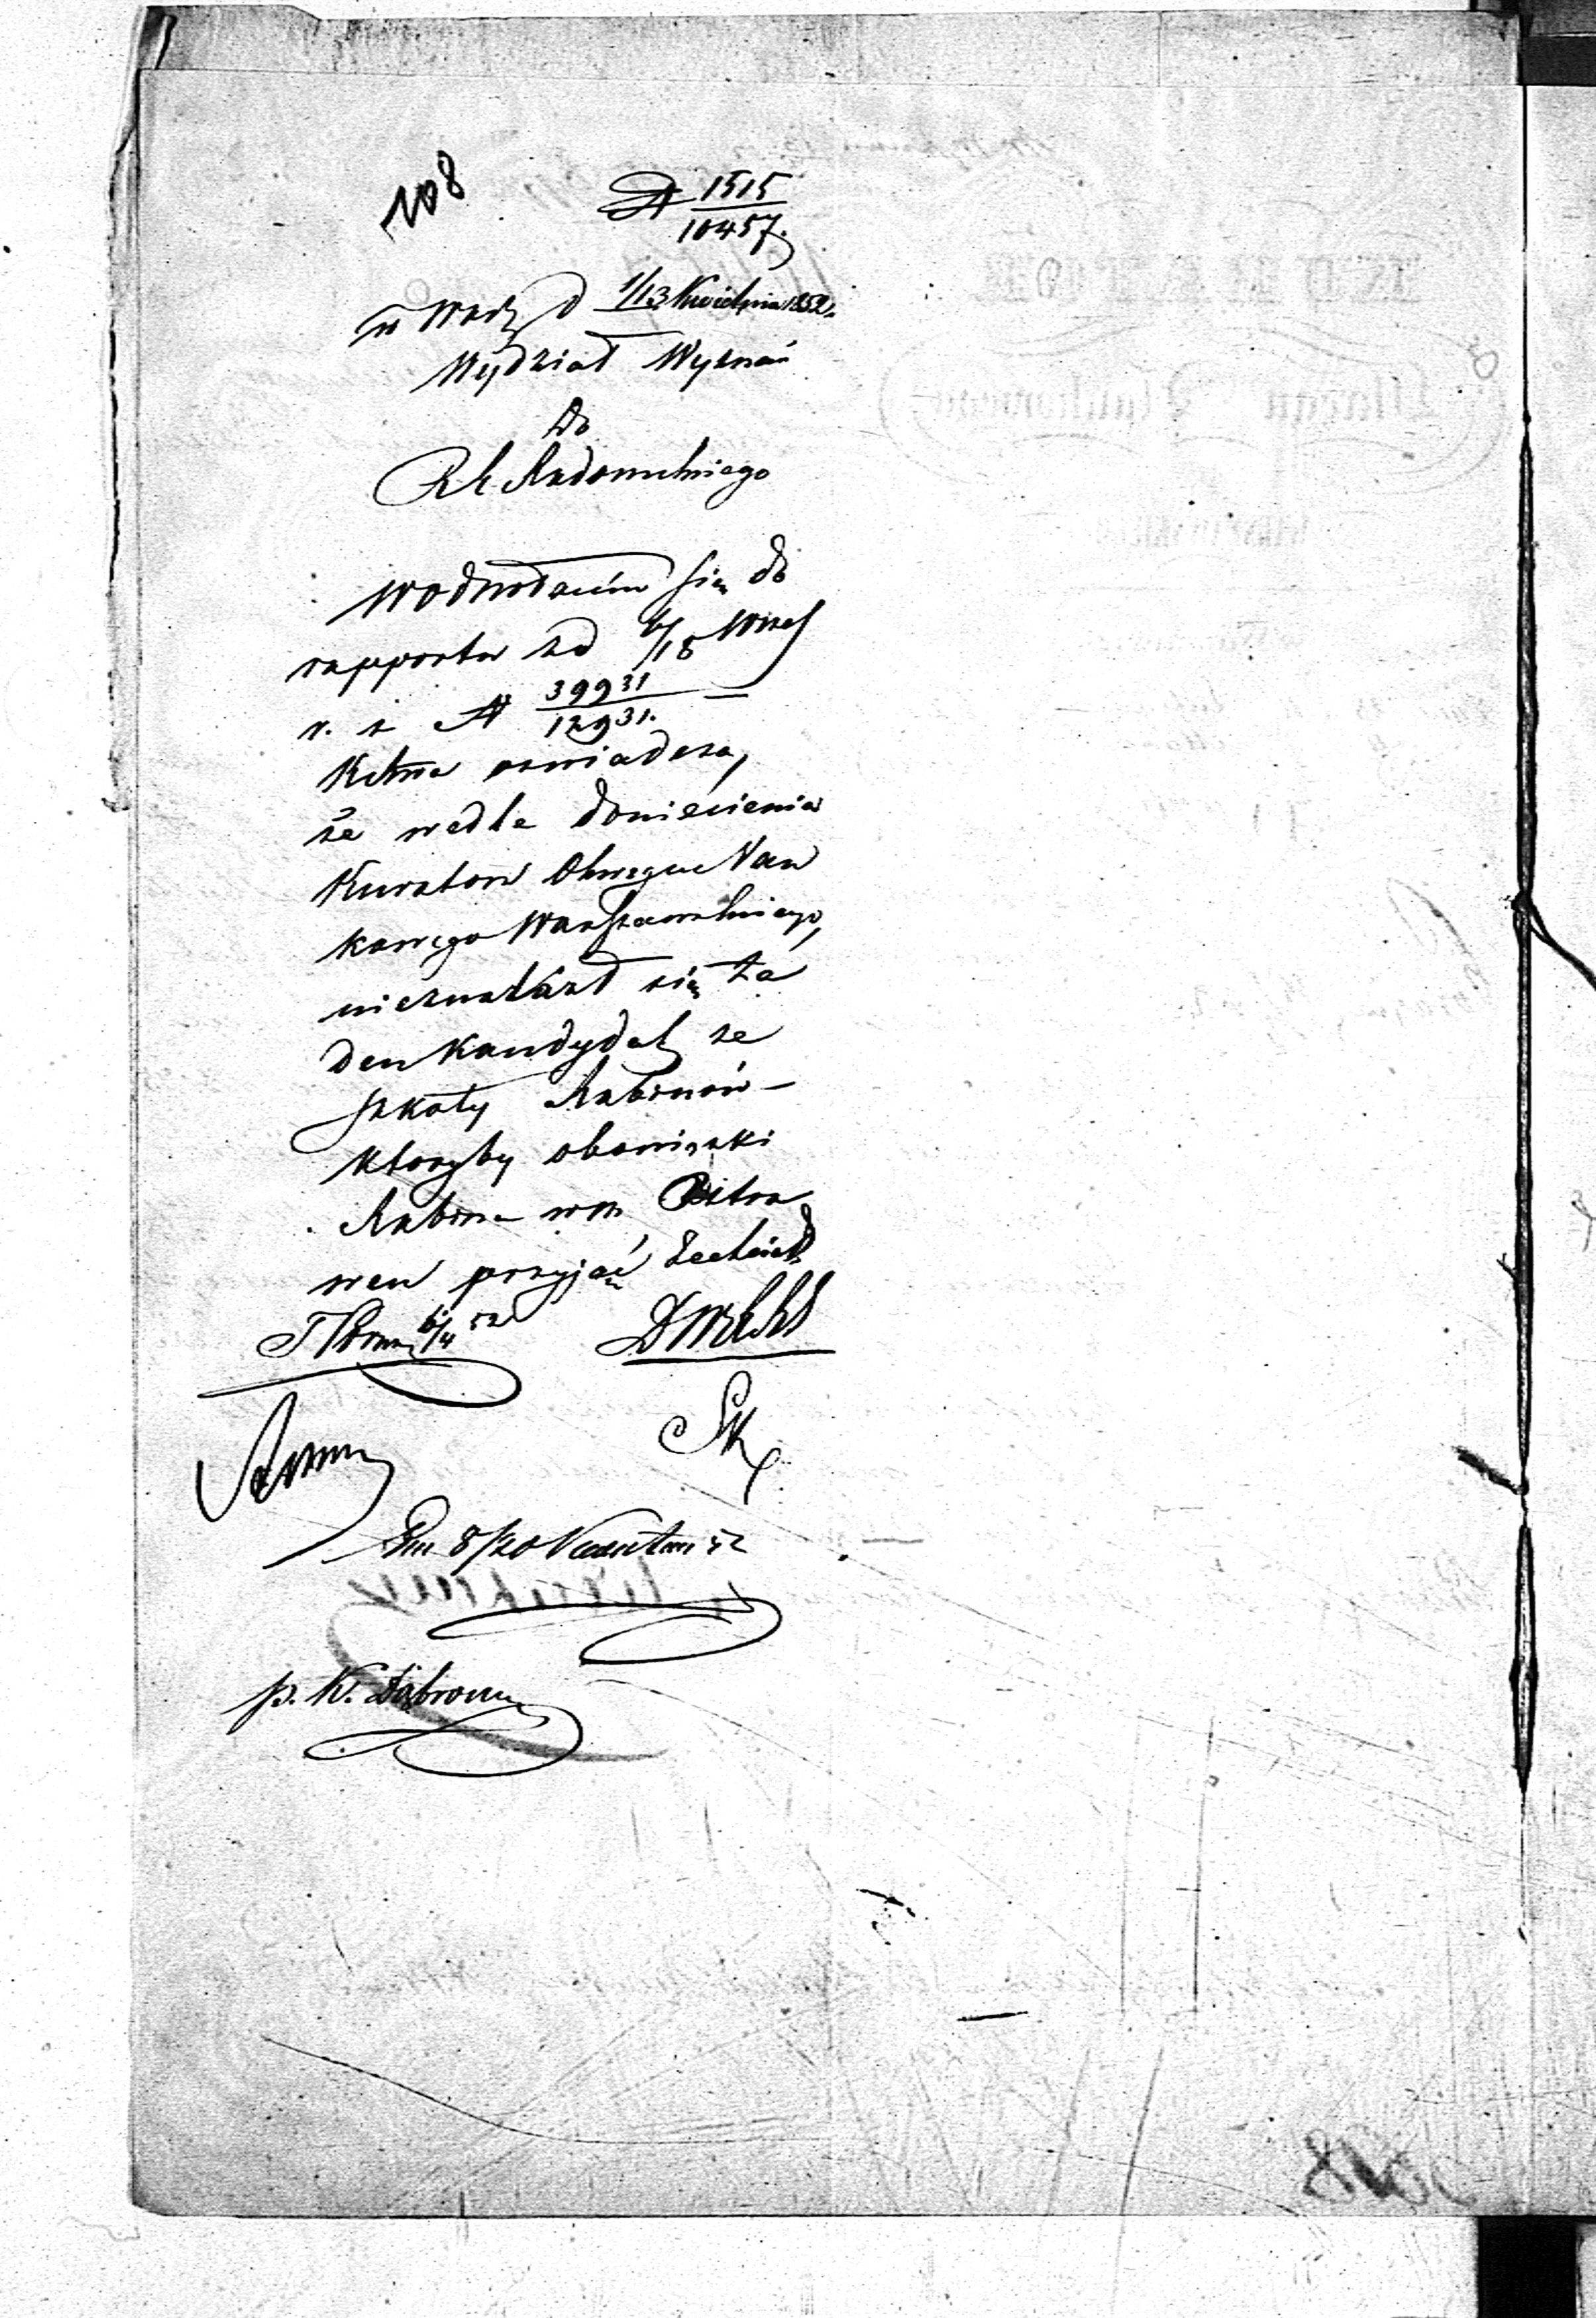 108
N 1515/10457.
w Warz d 1/13 Kwietnia 1852.
Wydział Wyznań
Do
R. G. Radomskiego
W odwołaniu się do
rapportu z d 6/18 Wrześ
r. z N 39931/12931.
Kommа oswiadcza,
że wedle doniesienia
Kuratora Okręgu Nau
kowego Warszawskiego,
nieznalazł się ża
den kandydat ze
szkoły Rabinów
ktoryby obowiązki
Rabina w m. Ostro
wcu przyjąć zechciał
SK
8/20 Kwietnia 52
p. K. Dąbrowski